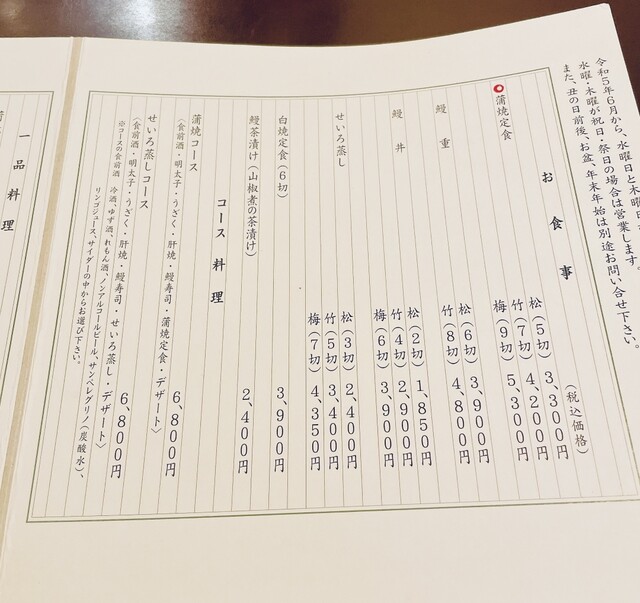 令和5年6月から、水曜日と木曜日
水曜・木曜が祝日・祭日の場合は営業します。
また、丑の日前後、お盆、年末年始は別途お問い合せ下さい。
お食事
(税込価格)
蒲焼定食
松(5切) 3,300円
竹(7切) 4,200円
梅(9切) 5,300円
鰻重
松(6切) 3,900円
竹(8切) 4,800円
鰻丼
松(2切) 1,850円
竹(4切) 2,900円
梅(6切) 3,900円
せいろ蒸し
松(3切) 2,400円
竹(5切) 3,400円
梅(7切) 4,350円
白焼定食(6切) 3,900円
鰻茶漬け(山椒煮の茶漬け) 2,400円
コース料理
蒲焼コース 6,800円
〈食前酒・明太子・うざく・肝焼・鰻寿司・蒲焼定食・デザート〉
せいろ蒸しコース 6,800円
〈食前酒・明太子・うざく・肝焼・鰻寿司・せいろ蒸し・デザート〉
※コースの食前酒 冷酒、ゆず酒、れもん酒、ノンアルコールビール、サンペレグリノ(炭酸水)、
リンゴジュース、サイダーの中からお選び下さい。
一品料理